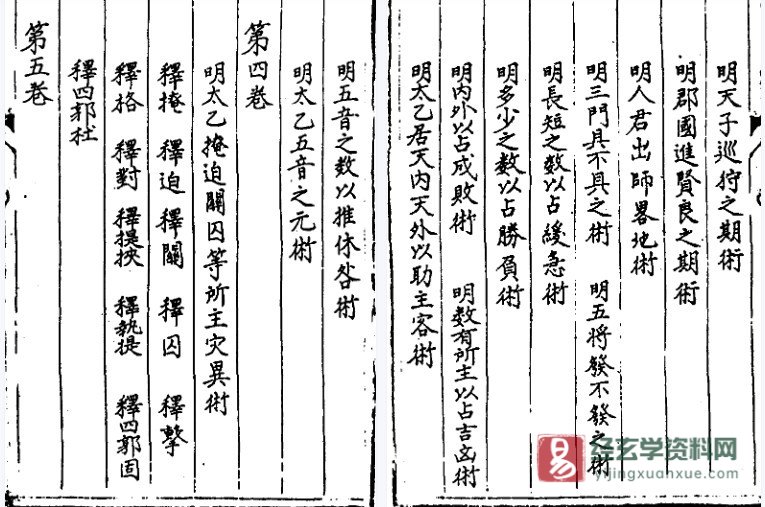 明天子巡狩之期術
明郡國進賢良之期術
明人君出師畧地術
明三門具不具之術 明五将發不發之術
明長短之数以占緩急術
明多少之数以占勝負術
明内外以占成敗術 明数有所主以占吉凶術
明太乙居天内天外以助主客術
明五音之数以推休咎術
明太乙五音之元術
第四巻
明太乙掩迫關囚等所主灾異術
釋掩 釋迫 釋關 釋囚 釋擊
釋格 釋對 釋提挾 釋執提 釋四郭固
釋四郭杜
第五巻
易
经玄学资料网
yijingxuanxue.com